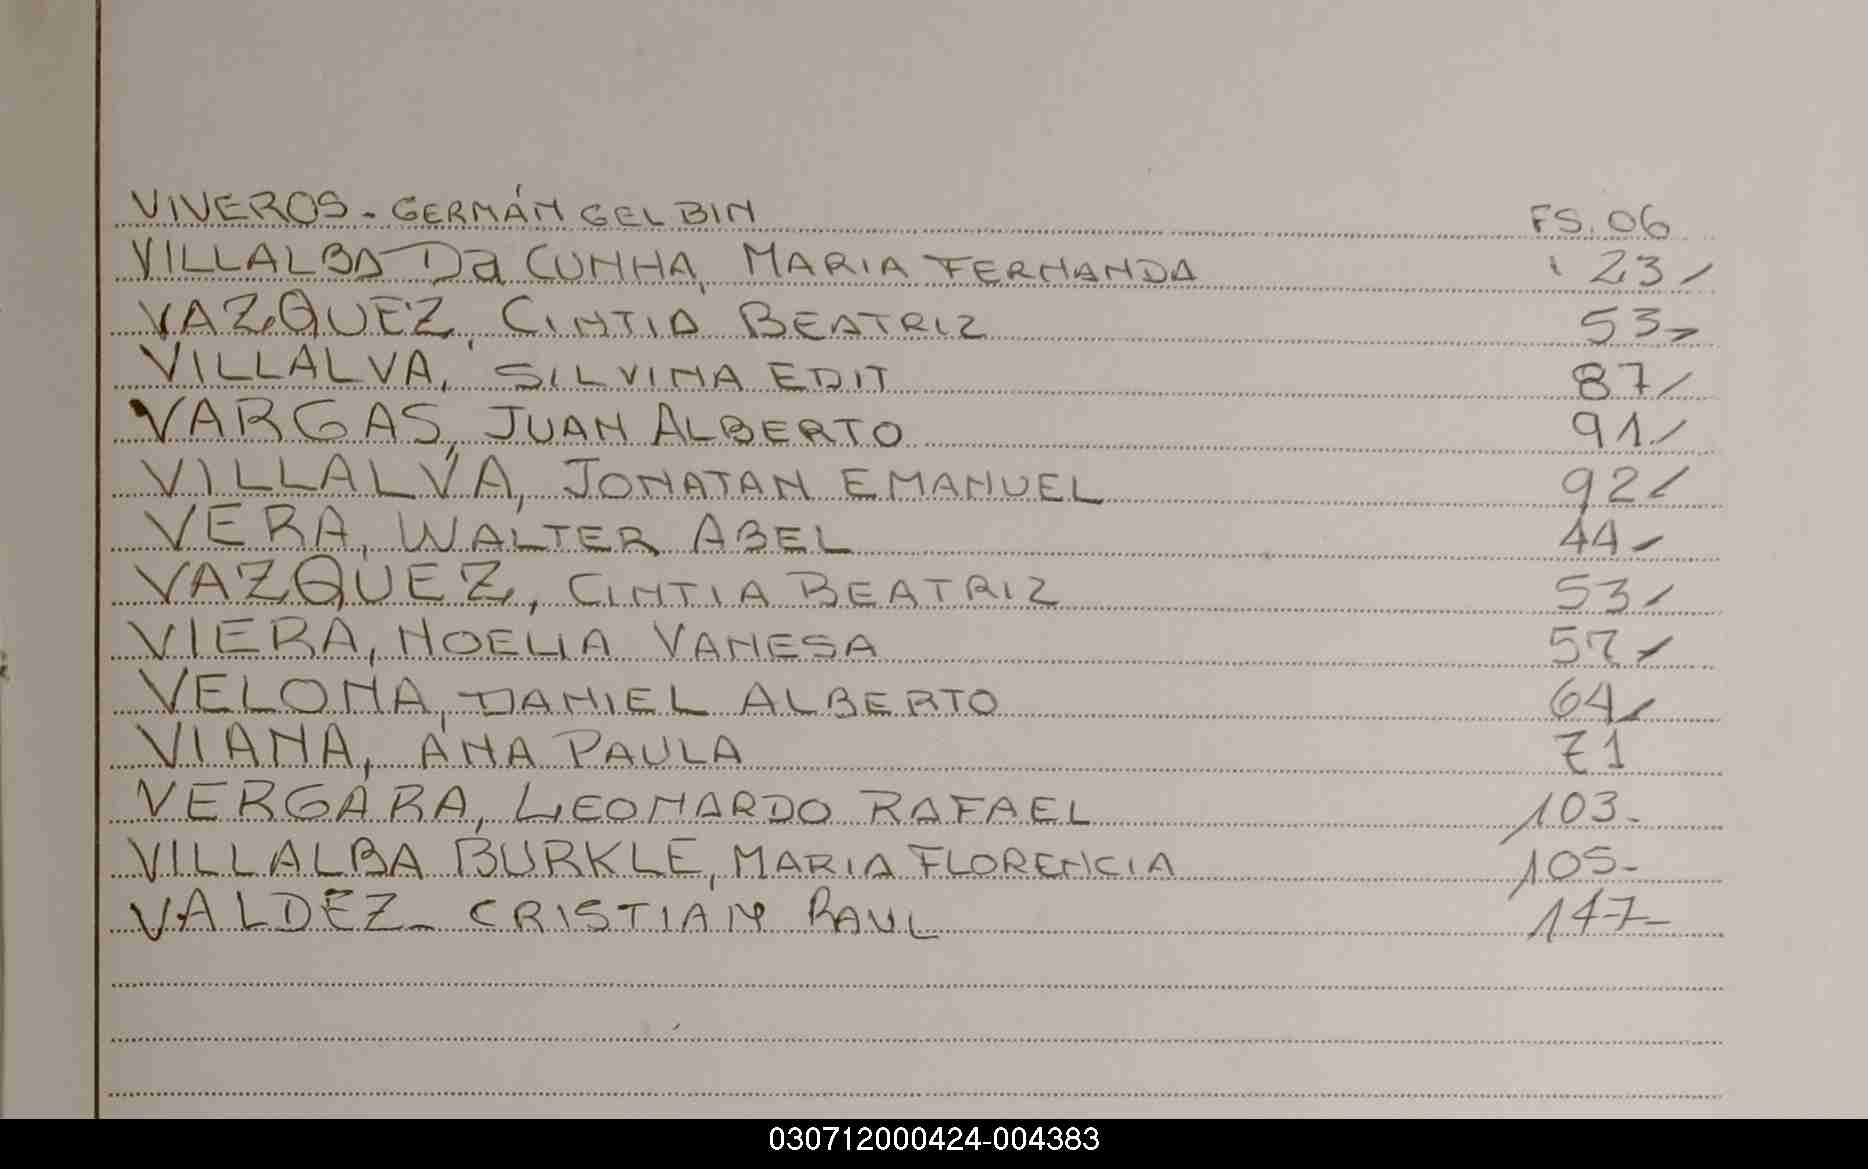 VIVEROS - GERMÁN GELBIN FS. 06
VILLALBA Da CUNHA, MARIA FERNANDA 23/
VAZQUEZ, CINTIA BEATRIZ 53-
VILLALVA, SILVINA EDIT 87/
VARGAS, JUAN ALBERTO 91/
VILLALVA, JONATAN EMANUEL 92/
VERA, WALTER ABEL 44-
VAZQUEZ, CINTIA BEATRIZ 53/
VIERA, NOELIA VANESA 57/
VELONA, DANIEL ALBERTO 64/
VIANA, ANA PAULA 71
VERGARA, LEONARDO RAFAEL 103-
VILLALBA BURKLE, MARIA FLORENCIA 105-
VALDEZ - CRISTIAN RAUL 147-
030712000424-004383